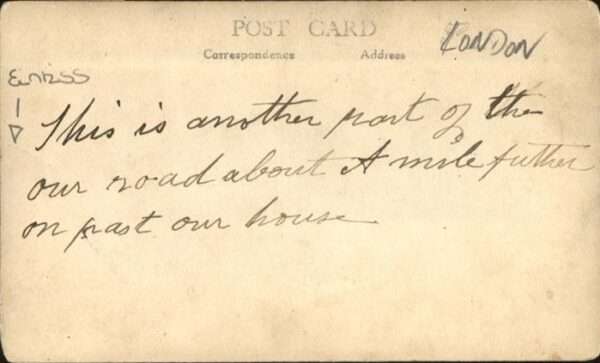 POST CARD
Correspondence Address
LONDON
This is another part of the
our road about A mile futher
on past our house